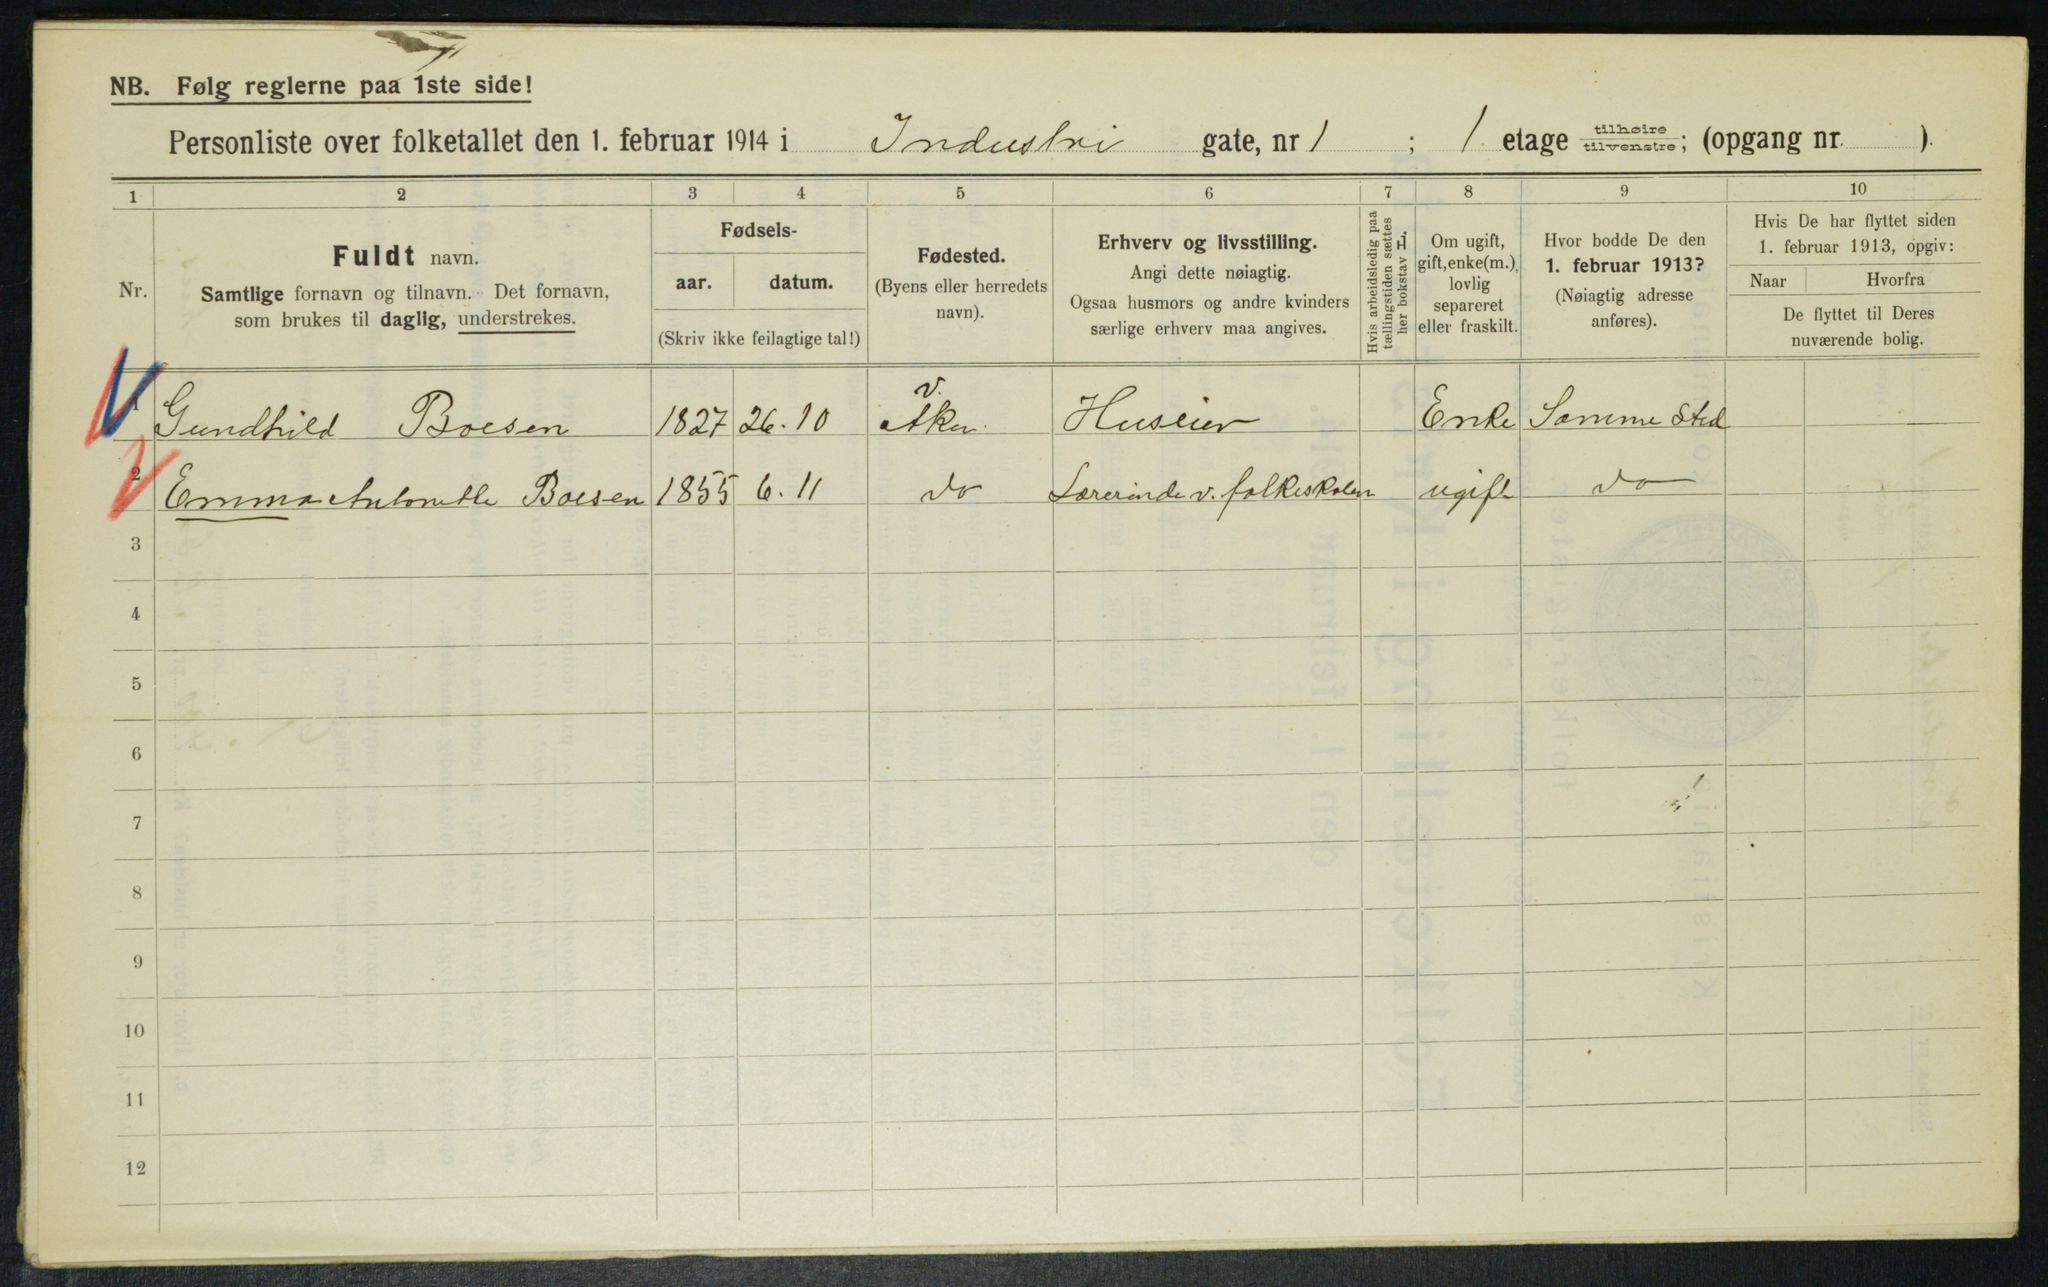 NB. Følg reglerne paa 1ste side!
Personliste over folketallet den 1. februar 1914 i Industri gate, nr 1 ; 1 etage tilhøire tilvenstre; (opgang nr. ).
1 2 3 4 5 6 7 8 9 10
Nr.
Fuldt navn.
Samtlige fornavn og tilnavn. Det fornavn,
som brukes til daglig, understrekes.
Fødsels-
aar. datum.
(Skriv ikke feilagtige tal!)
Fødested.
(Byens eller herredets
navn).
Erhverv og livsstilling.
Angi dette nøiagtig.
Ogsaa husmors og andre kvinders
særlige erhverv maa angives.
Hvis arbeidsledig paa
tællingstiden sættes
her bokstav L.
Om ugift,
gift, enke(m.),
lovlig
separeret
eller fraskilt.
Hvor bodde De den
1. februar 1913?
(Nøiagtig adresse
anføres).
Hvis De har flyttet siden
1. februar 1913, opgiv:
Naar Hvorfra
De flyttet til Deres
nuværende bolig.
1 Gundhild Boesen 1827 26.10 V. Aker Huseier Enke Samme Sted
2 Emma Antonette Boesen 1855 6.11 do Lærerinde v. folkeskolen ugift do
3
4
5
6
7
8
9
10
11
12